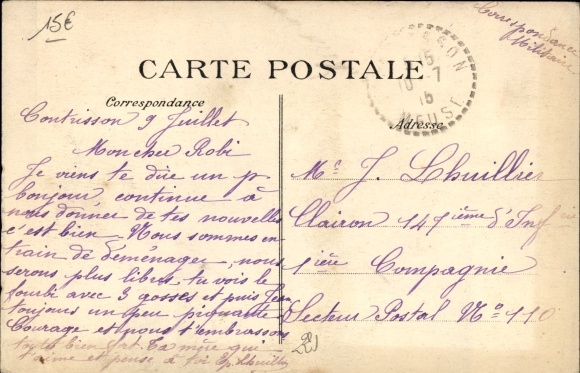 15€
Correspondance
Militaire
15
10-7
15
MEUSE
CARTE POSTALE
Correspondance
Adresse
Contrisson 9 Juillet
Mon cher Robi
Je viens te dire un p
bonjour, continue à
nous donner de tes nouvelles
c'est bien. Nous sommes en
train de déménager, nous
serons plus libres, tu vois le
fourbi avec 3 gosses et puis
toujours un peu
Courage et nous t'embrassons
tous bien fort. Ta mère qui
t'aime et pense à toi Lhuillier
Mr J. Lhuillier
Clairon 147ième d'Infie
1ière Compagnie
Secteur Postal No 110